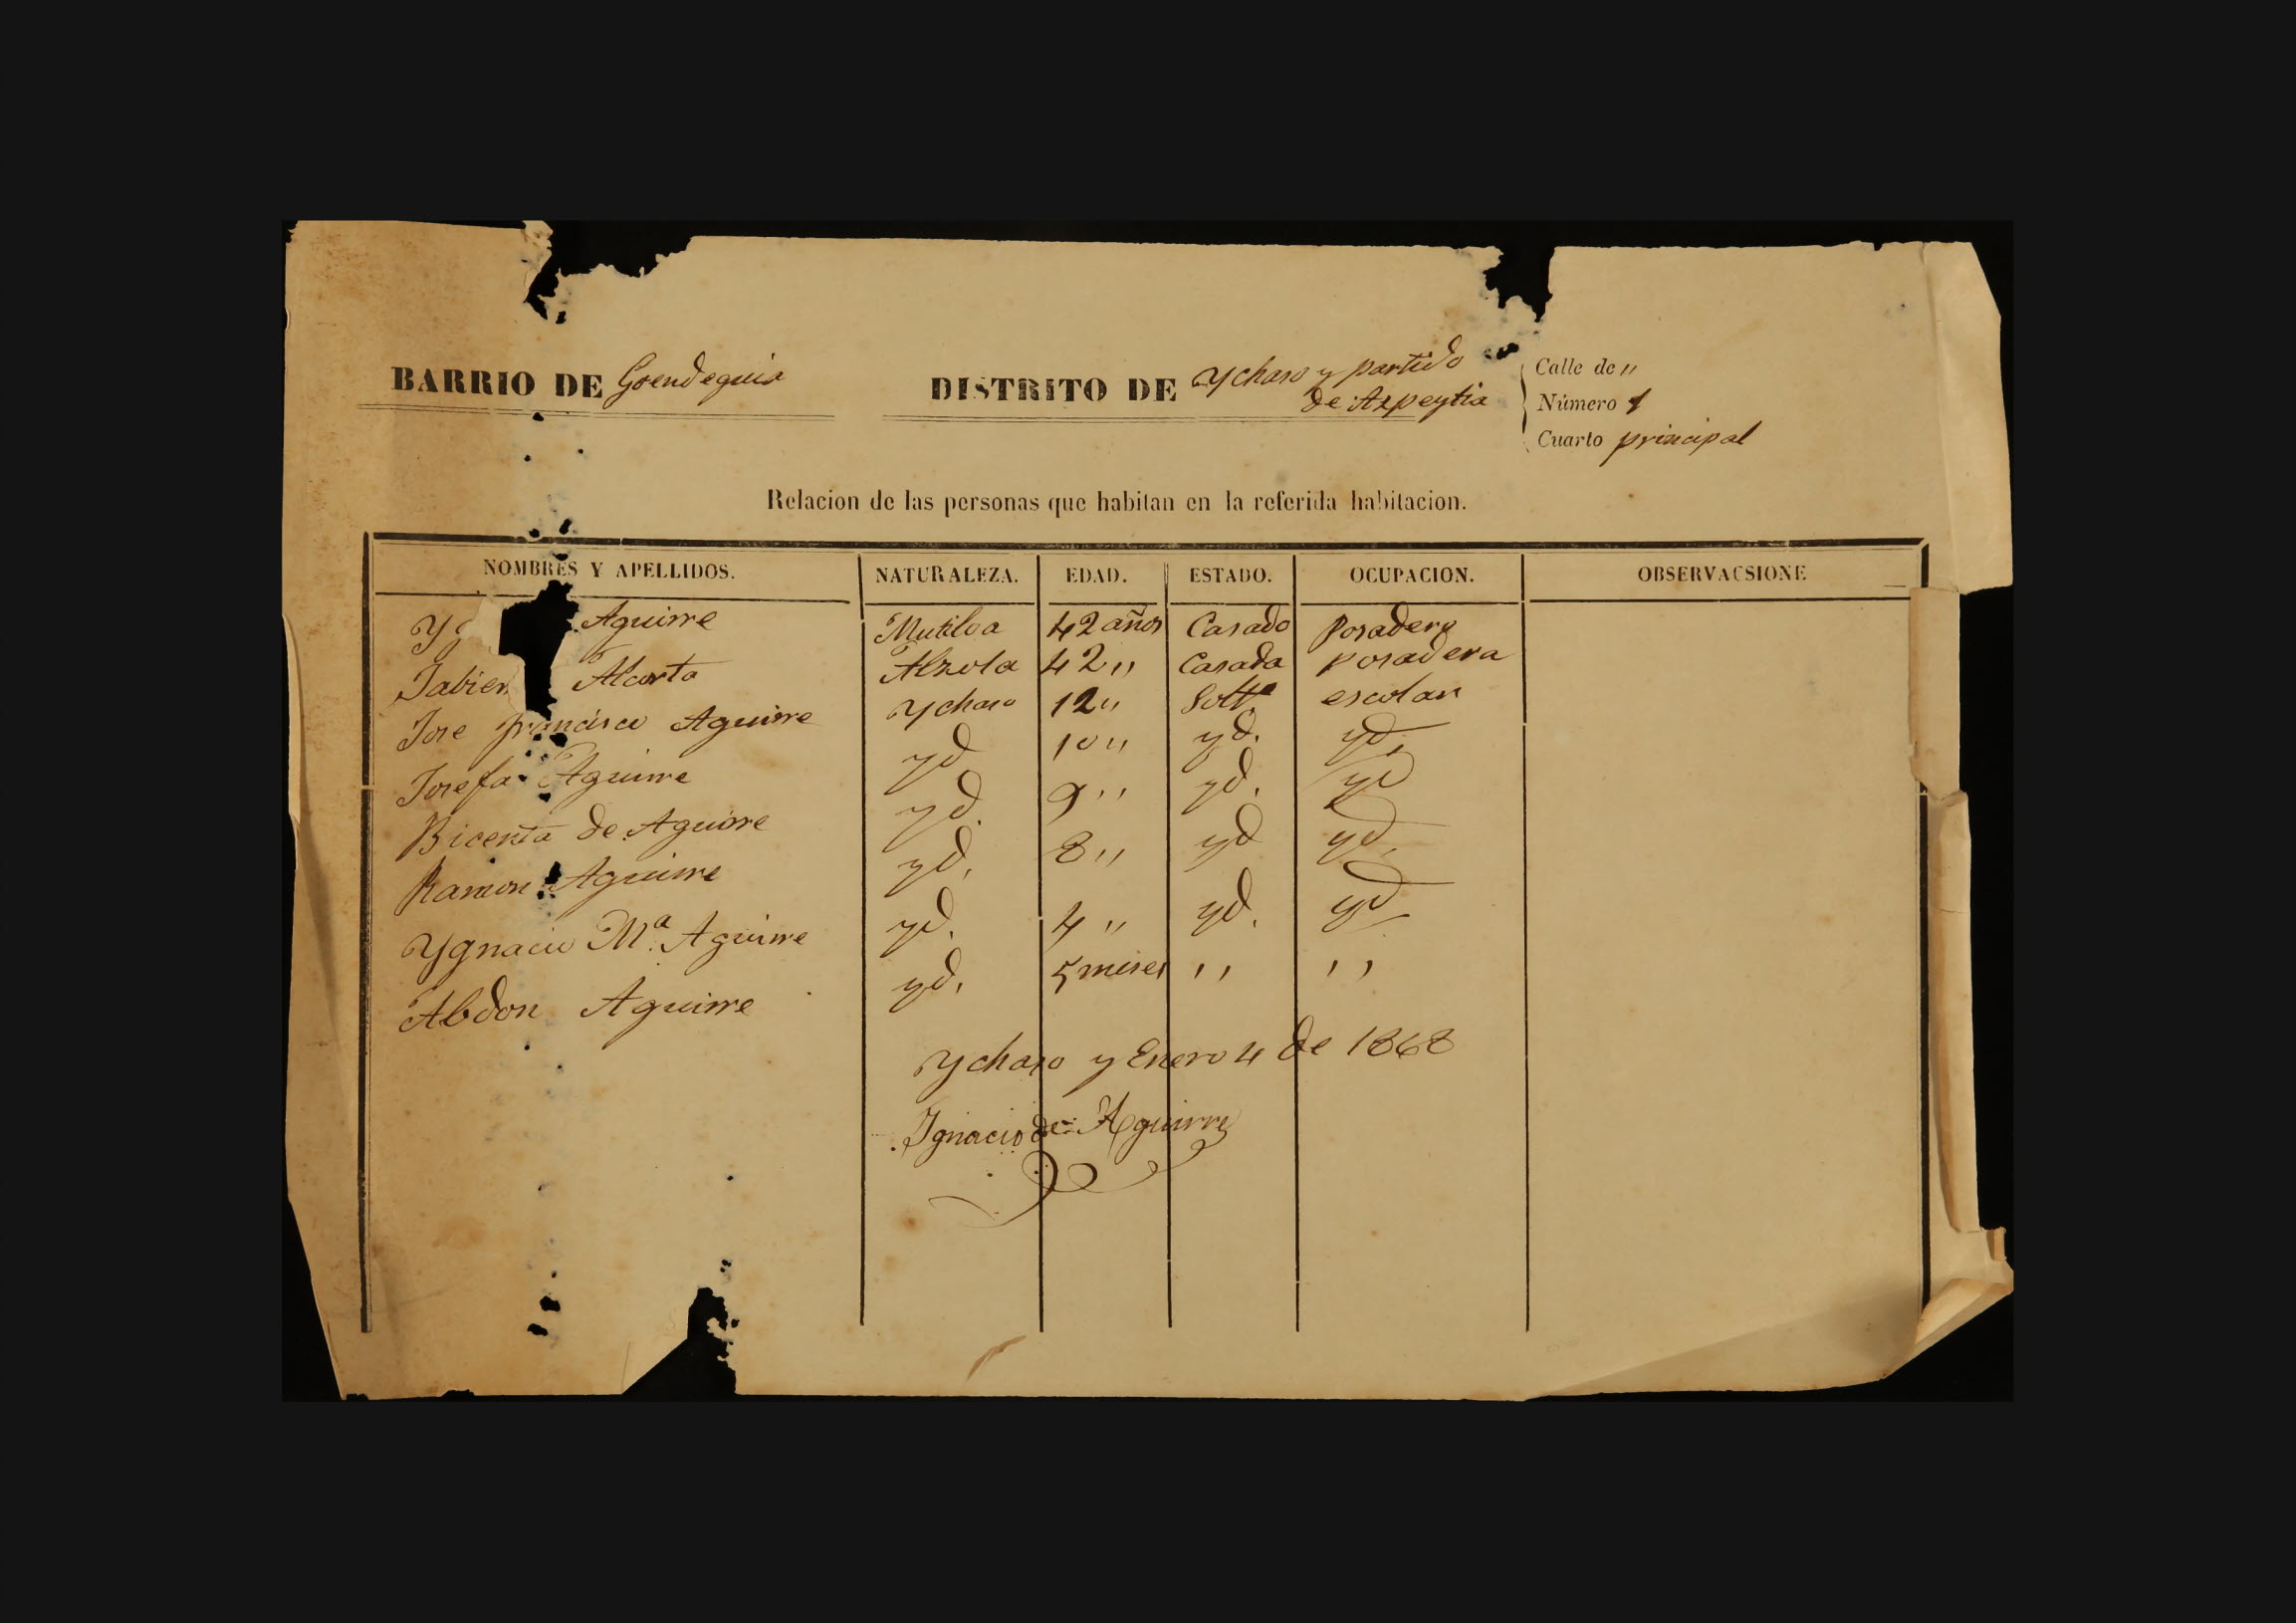 BARRIO DE Goendeguia DISTRITO DE Ychaso y partido
de Azpeytia
Calle de "
Número 1
Cuarto principal
Relacion de las personas que habitan en la referida habitacion.
NOMBRES Y APELLIDOS. NATURALEZA. EDAD. ESTADO. OCUPACION. OBSERVACSIONE
Aguirre Mutiloa 42 años Casado Posadero
Alcorta Alzola 42 " Casada posadera
Jose francisco Aguirre Ychaso 12 " Solt.º escolar
Josefa Aguirre yd 10 " yd. yd,
Bicenta de Aguirre yd. 9 " yd. yd
Ramon Aguirre yd. 8 " yd yd.
Ygnacio M.ª Aguirre yd. 4 " yd. yd
Abdon Aguirre yd. 5 meses " "
Ychaso y Enero 4 de 1868
Ignacio de Aguirre